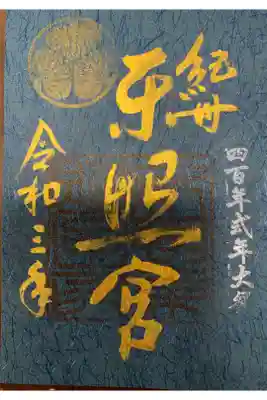 紀州
東照宮
四百年式年大祭
令和三年